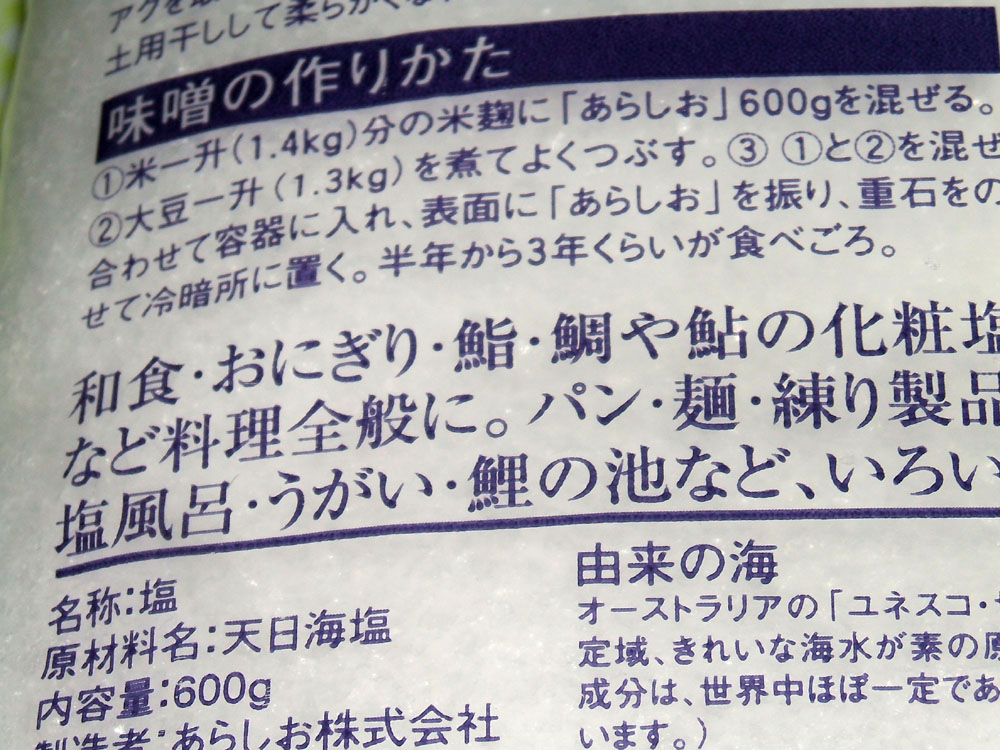 土用干しして柔らかくな
味噌の作りかた
①米一升(1.4kg)分の米麹に「あらしお」600gを混ぜる。
②大豆一升(1.3kg)を煮てよくつぶす。③ ①と②を混ぜ
合わせて容器に入れ、表面に「あらしお」を振り、重石をの
せて冷暗所に置く。半年から3年くらいが食べごろ。
和食・おにぎり・鮨・鯛や鮎の化粧塩
など料理全般に。パン・麺・練り製品
塩風呂・うがい・鯉の池など、いろい
名称:塩
原材料名:天日海塩
内容量:600g
製造者:あらしお株式会社
由来の海
オーストラリアの「ユネスコ・
定域、きれいな海水が素の原
成分は、世界中ほぼ一定であ
います。)